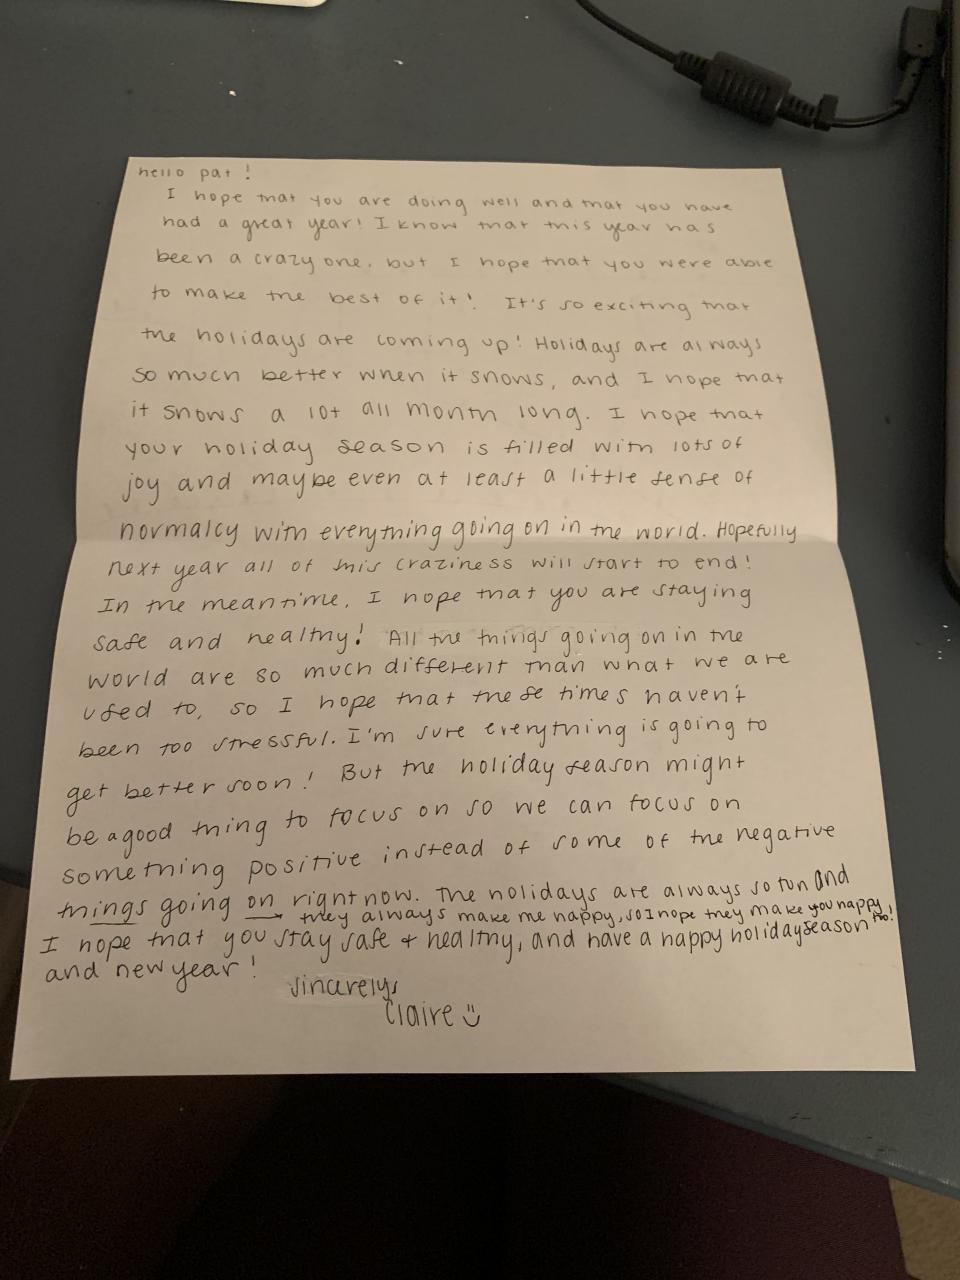 hello pat!
I hope that you are doing well and that you have
had a great year! I know that this year has
been a crazy one, but I hope that you were able
to make the best of it! It's so exciting that
the holidays are coming up! Holidays are always
so much better when it snows, and I hope that
it snows a lot all month long. I hope that
your holiday season is filled with lots of
joy and maybe even at least a little sense of
normalcy with everything going on in the world. Hopefully
next year all of this craziness will start to end!
In the meantime, I hope that you are staying
safe and healthy! All the things going on in the
world are so much different than what we are
used to, so I hope that these times haven't
been too stressful. I'm sure everything is going to
get better soon! But the holiday season might
be a good thing to focus on so we can focus on
something positive instead of some of the negative
things going on right now. The holidays are always so fun and
they always make me happy, so I hope they make you happy too!
I hope that you stay safe + healthy, and have a happy holiday season
and new year!
sincerely,
Claire